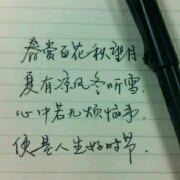 春赏百花秋望月
夏有凉风冬听雪.
心中若无烦恼事.
便是人生好时节.